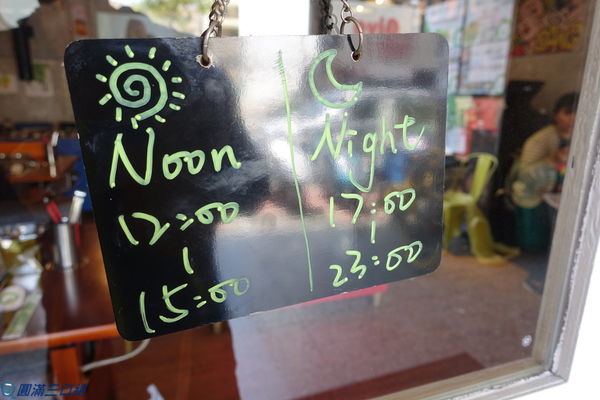 Noon
12:00
|
15:00
Night
17:00
|
23:00
圓滿三口組